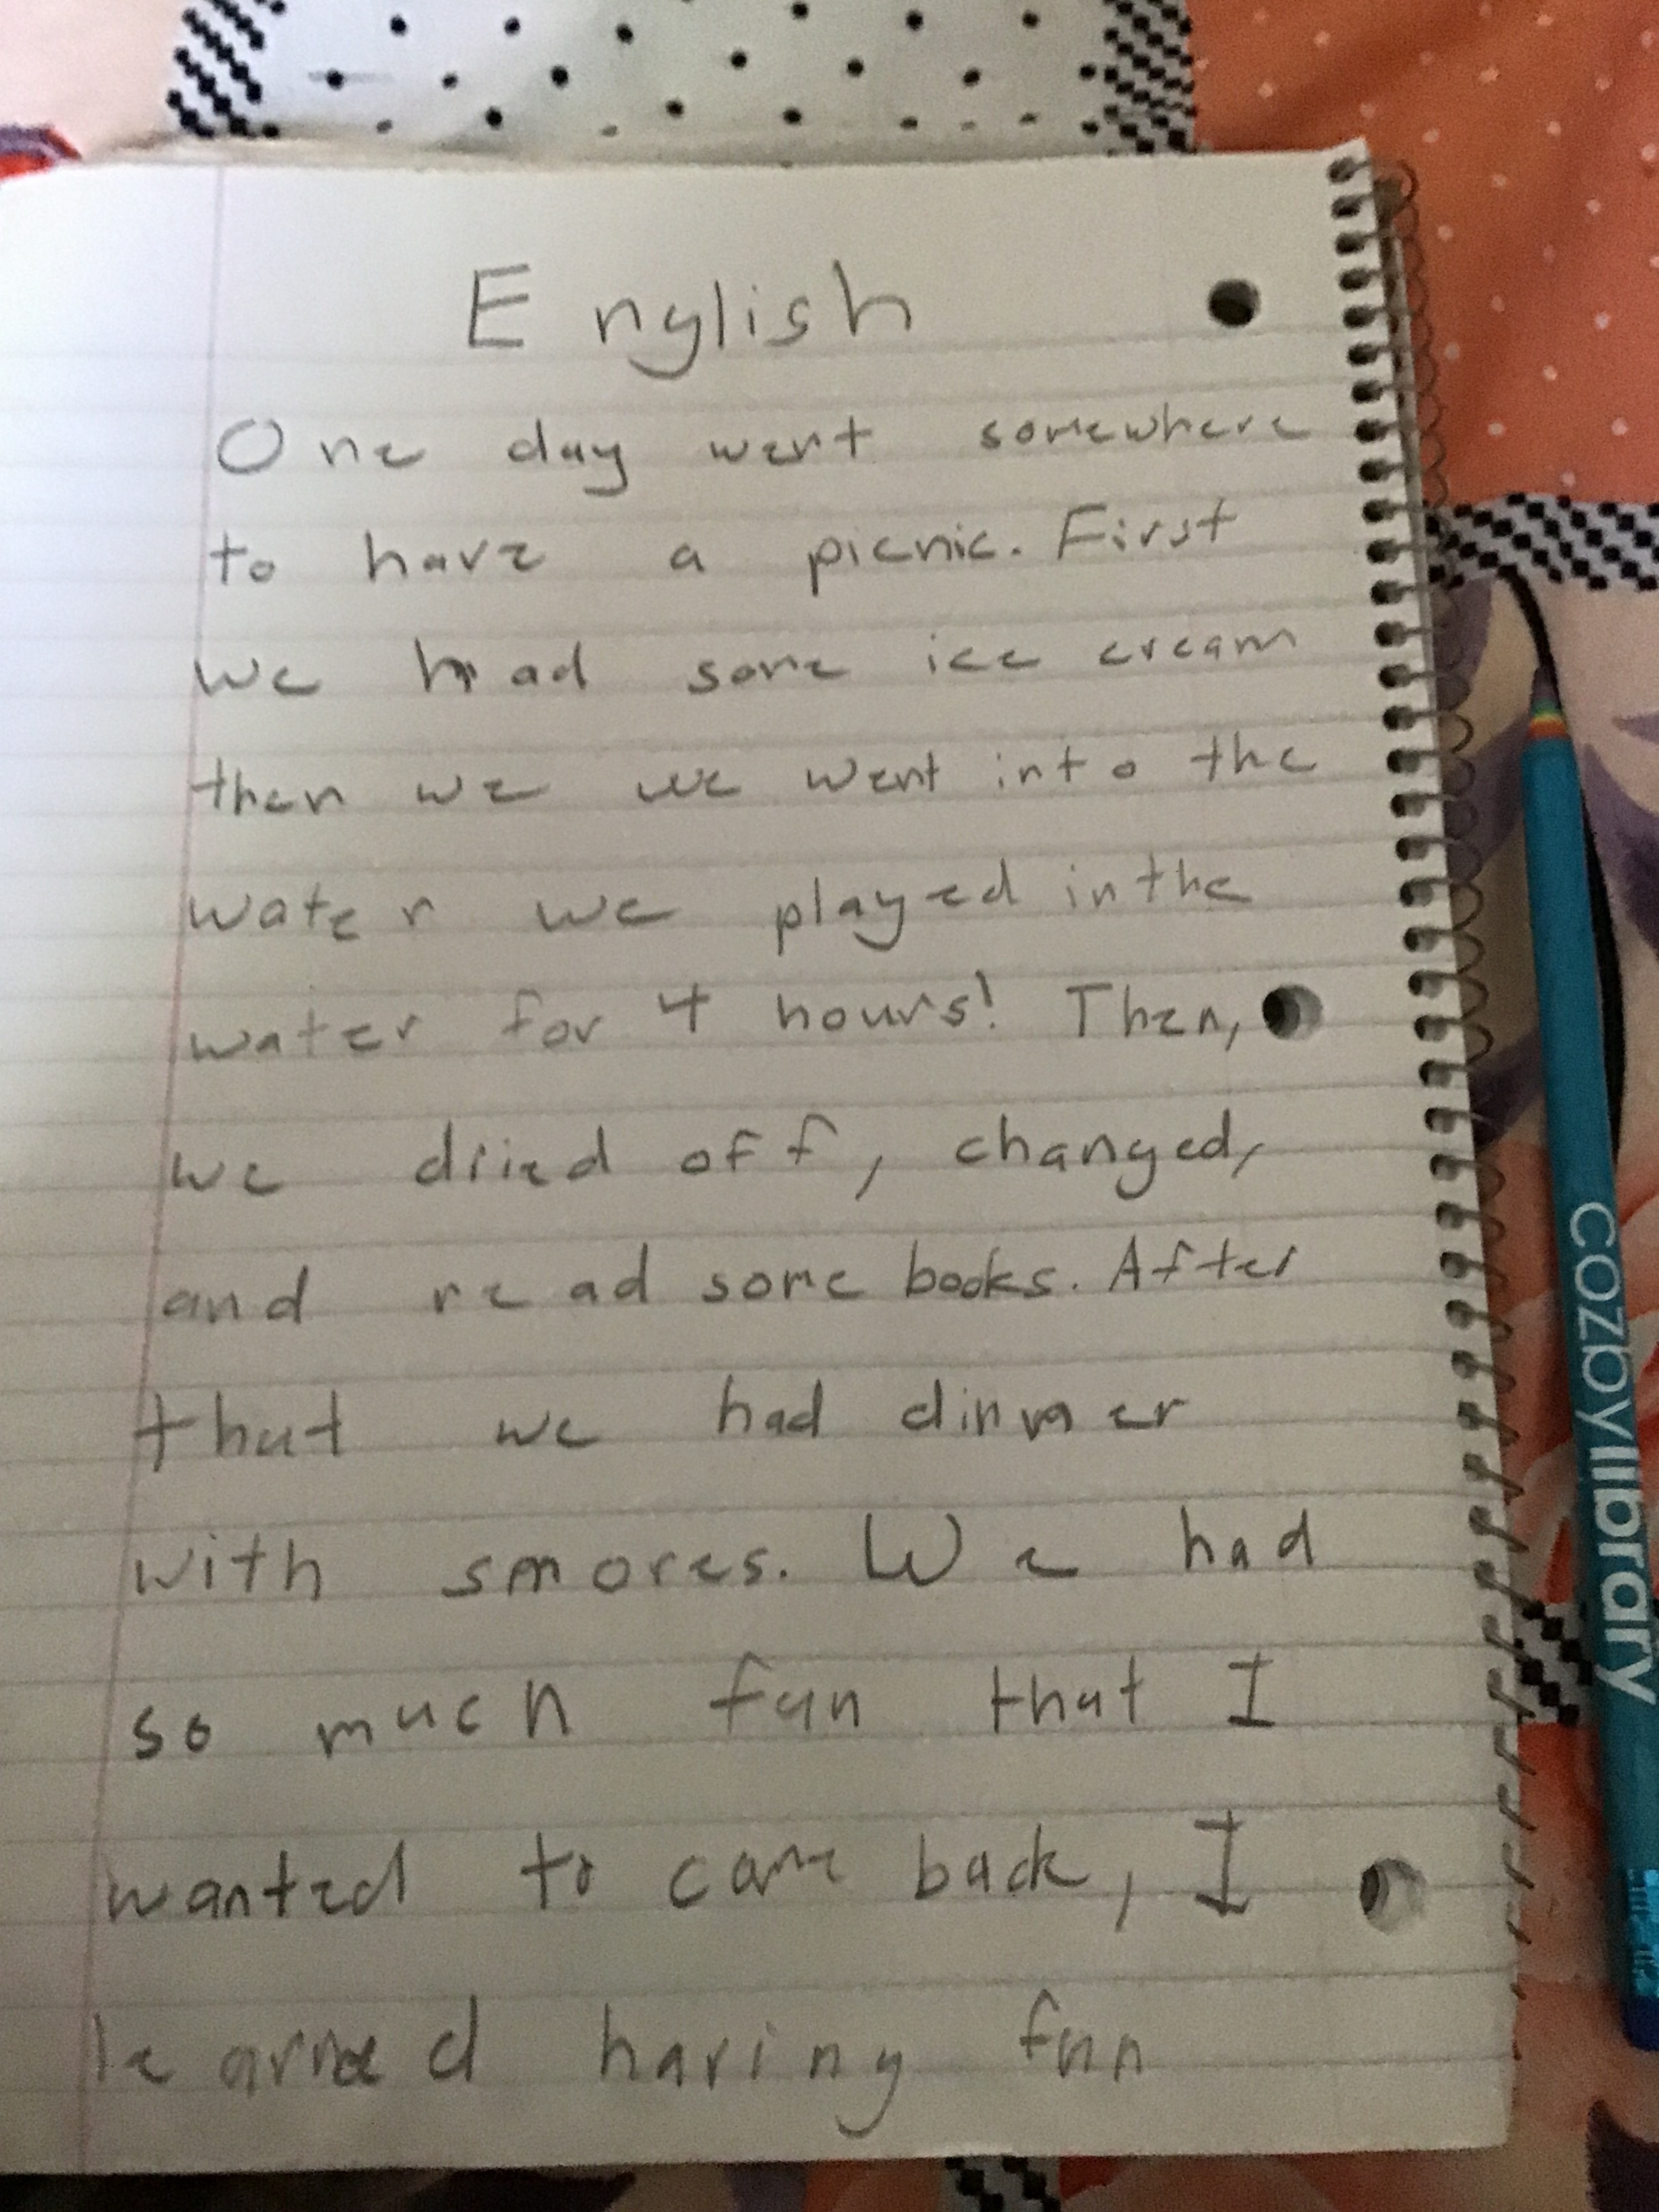 English
One day went somewhere
to have a picnic. First
we had some ice cream
then we we went into the
water we played in the
water for 4 hours! Then,
we dried off, changed,
and read some books. After
that we had dinner
with smores. We had
so much fun that I
wanted to come back, I
learned having fun
cozbyllibrary